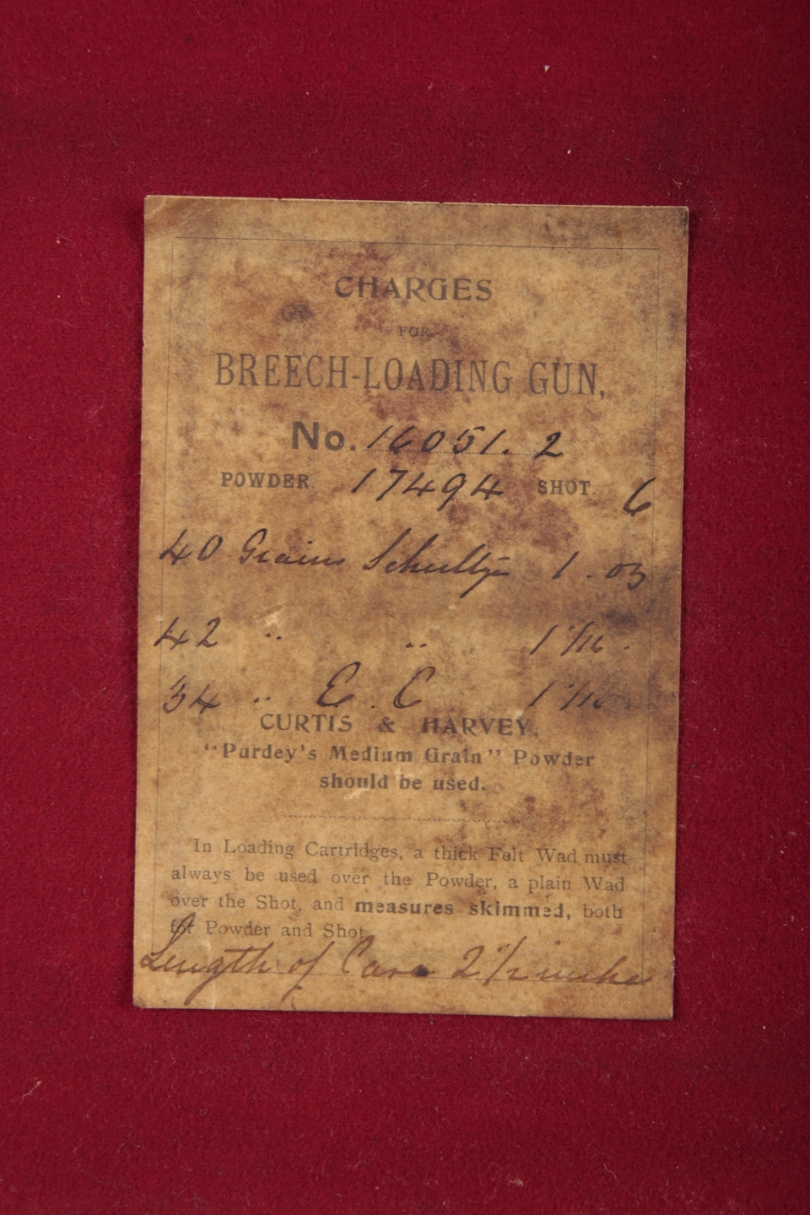 CHARGES
FOR
BREECH-LOADING GUN,
No. 16051. 2
POWDER. 17494 SHOT. 6
40 Grains Schultze 1. oz
42 " " 1 1/16.
34 " E. C 1 1/16
CURTIS & HARVEY,
"Purdey's Medium Grain" Powder
should be used.
In Loading Cartridges, a thick Felt Wad must
always be used over the Powder, a plain Wad
over the Shot, and measures skimmed, both
for Powder and Shot.
Length of Case 2 1/2 inches